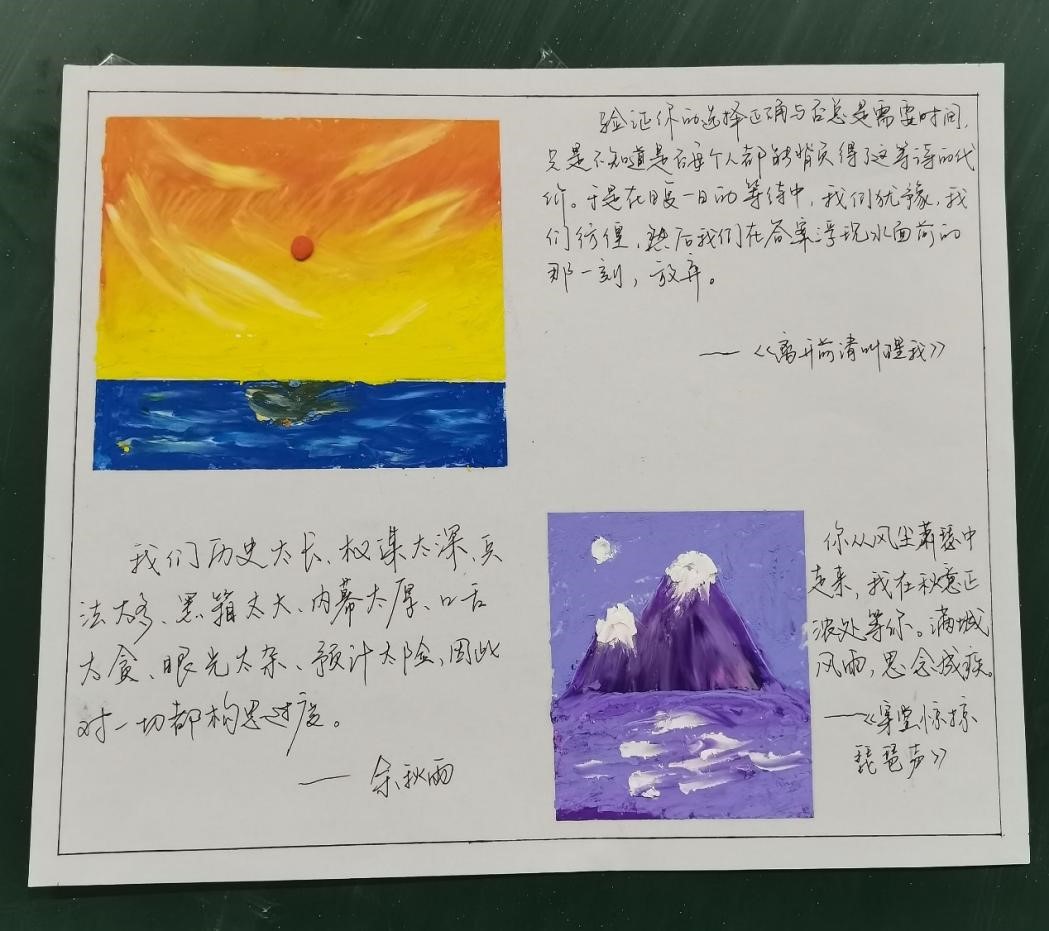 验证你的选择正确与否总是需要时间,
只是不知道是否每个人都能背负得了这等待的代
价。于是在日复一日的等待中,我们犹豫,我
们彷徨,然后我们在答案浮现水面前的
那一刻,放弃。
——《离开前请叫醒我》
我们历史太长、权谋太深、兵
法太多、黑箱太大、内幕太厚、口舌
太贪、眼光太杂、预计太险,因此
对一切都构思过度。
—— 余秋雨
你从风尘萧瑟中
走来,我在秋意正
浓处等你。满城
风雨,思念成疾。
——《穿堂惊掠
琵琶声》